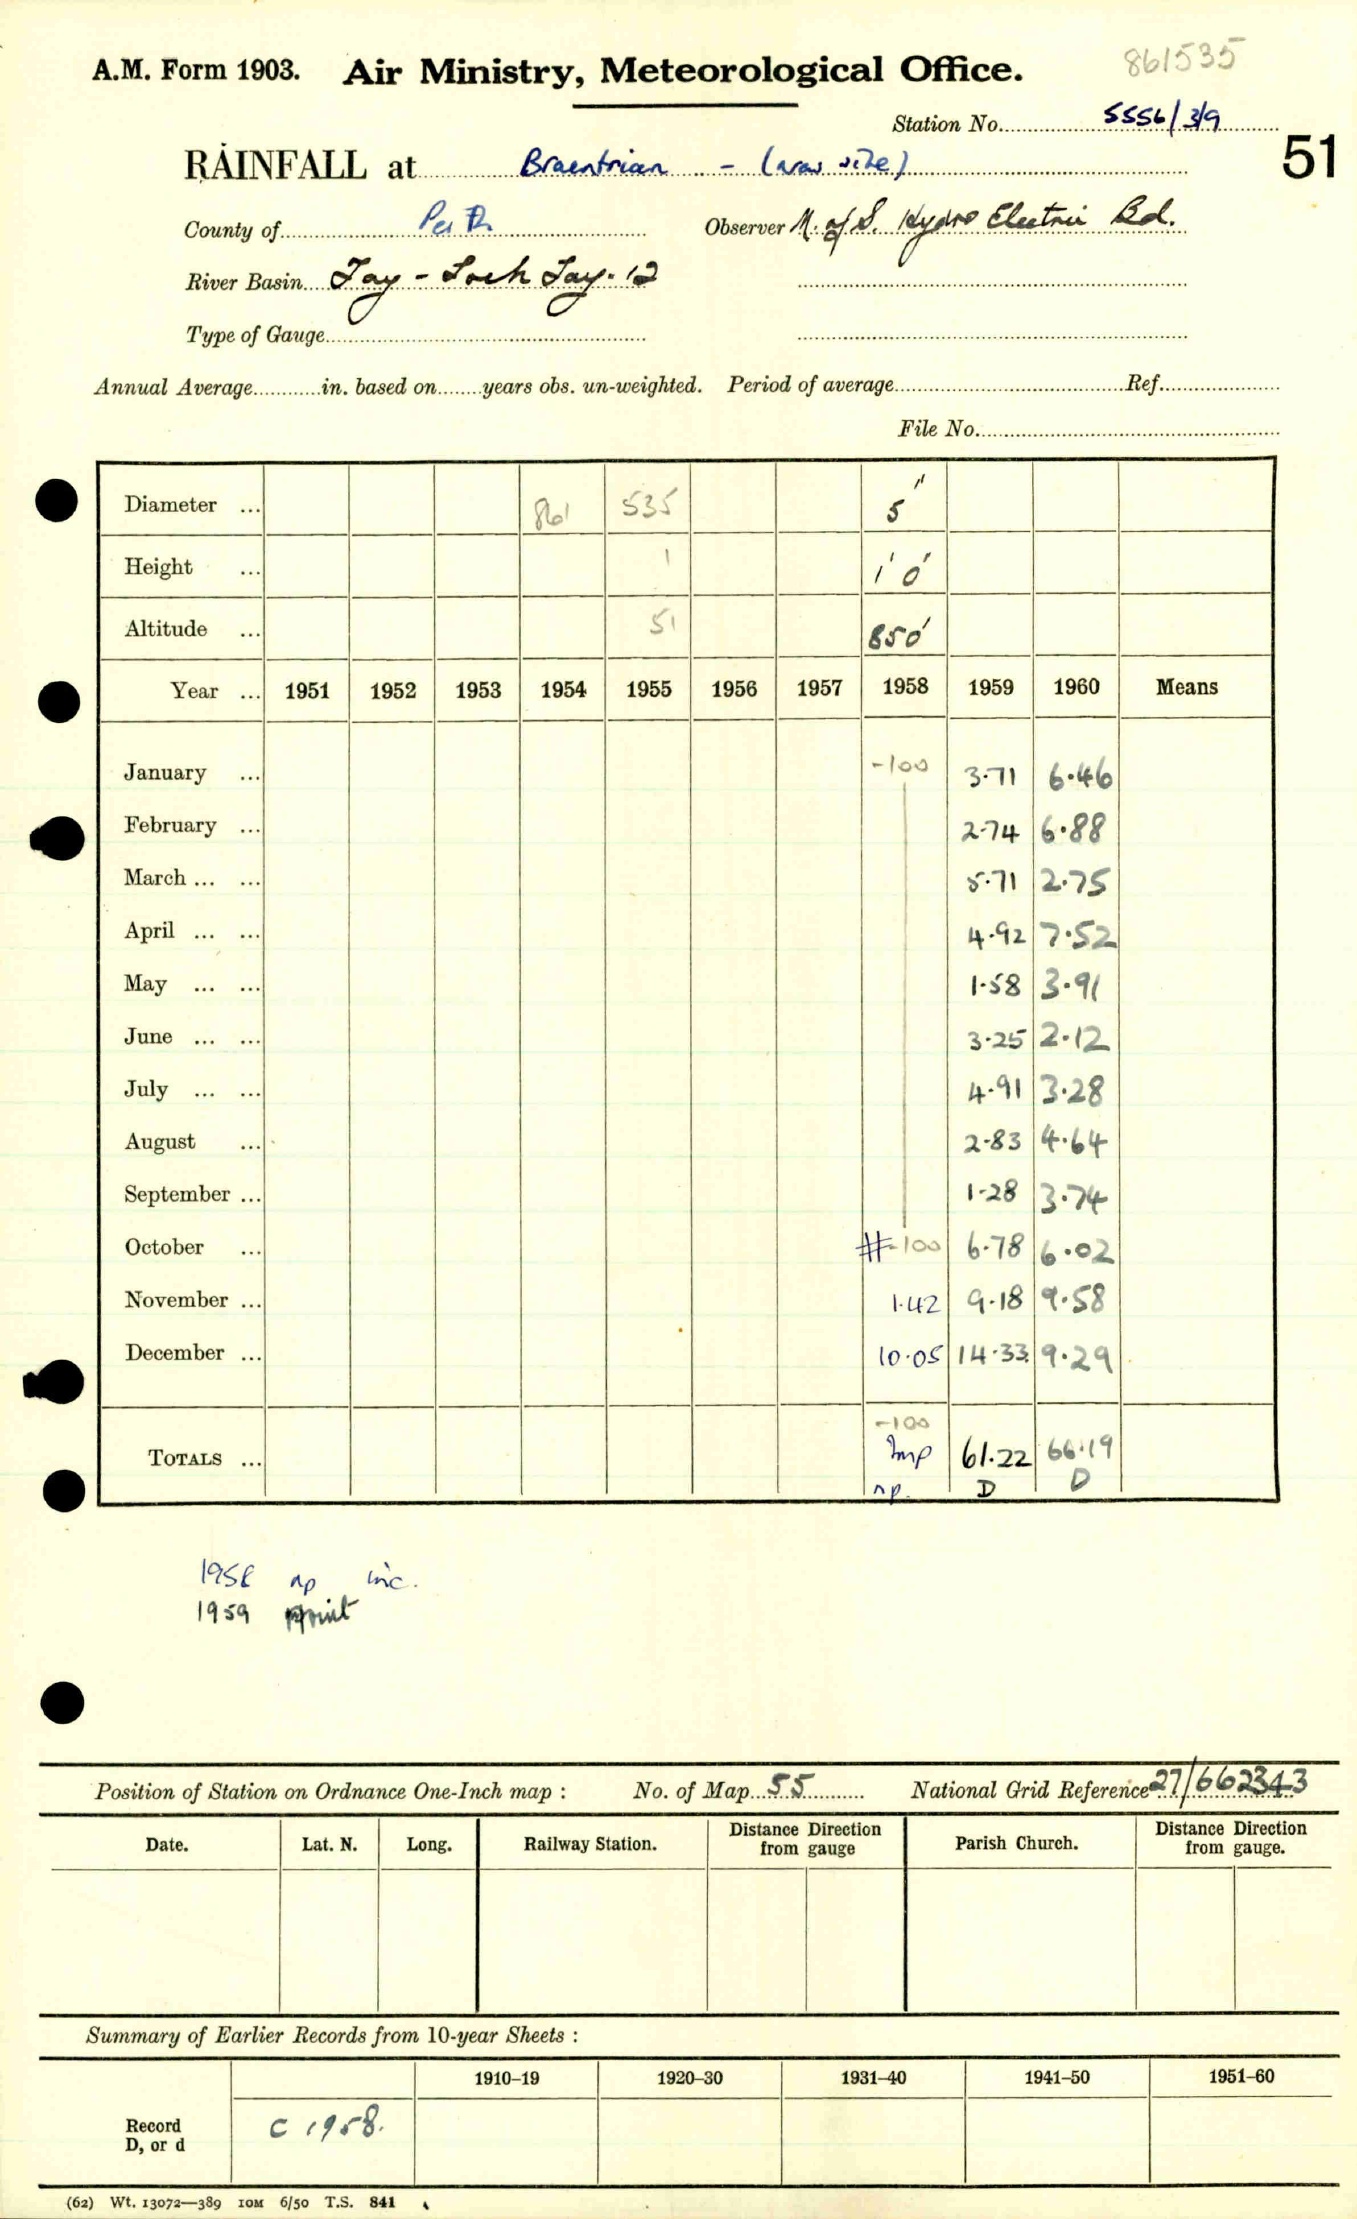 A.M. Form 1903. Air Ministry, Meteorological Office. 861535
Station No. 5556/3/9
51
RAINFALL at Braentrian - (new site)
County of Perth Observer N. of S. Hydro Electric Bd.
River Basin Tay - Loch Tay. 12
Type of Gauge
Annual Average in. based on years obs. un-weighted. Period of average Ref.
File No.
Diameter ... 861 535 5"
Height ... 1 1' 0"
Altitude ... 51 850'
Year ... 1951 1952 1953 1954 1955 1956 1957 1958 1959 1960 Means
January ... -100 3.71 6.46
February ... 2.74 6.88
March ... ... 5.71 2.75
April ... ... 4.92 7.52
May ... ... 1.58 3.91
June ... ... 3.25 2.12
July ... ... 4.91 3.28
August ... 2.83 4.64
September ... 1.28 3.74
October ... #-100 6.78 6.02
November ... 1.42 9.18 9.58
December ... 10.05 14.33 9.29
-100
TOTALS ... Imp 61.22 66.19
np. D D
1958 np inc.
1959 print
Position of Station on Ordnance One-Inch map : No. of Map 55 National Grid Reference 27/662343
Date. Lat. N. Long. Railway Station. Distance from Direction gauge Parish Church. Distance from Direction gauge.
Summary of Earlier Records from 10-year Sheets :
1910–19 1920–30 1931–40 1941–50 1951–60
Record D, or d C 1958.
(62) Wt. 13072—389 10M 6/50 T.S. 841